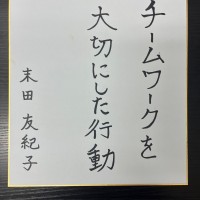 チームワークを
大切にした行動
末田 友紀子